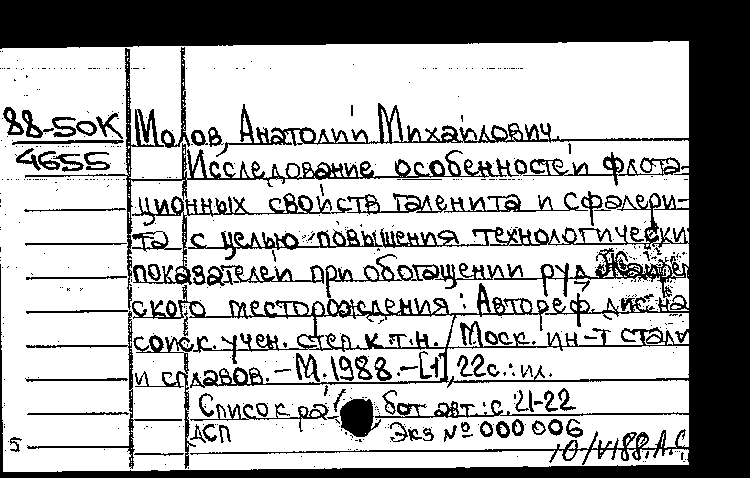 88-50К Молов, Анатолий Михайлович.
4655 Исследование особенностей флота-
ционных свойств галенита и сфалери-
та с целью повышения технологически
показателей при обогащении руд
ского месторождения: Автореф. дис. на
соиск. учен. степ. к.т.н. / Моск. ин-т стали
и сплавов. – М. 1988. – [1], 22с.: ил.
Список работ авт.: с. 21-22
ДСП Экз № 000006
5 10/VI88. А.С.